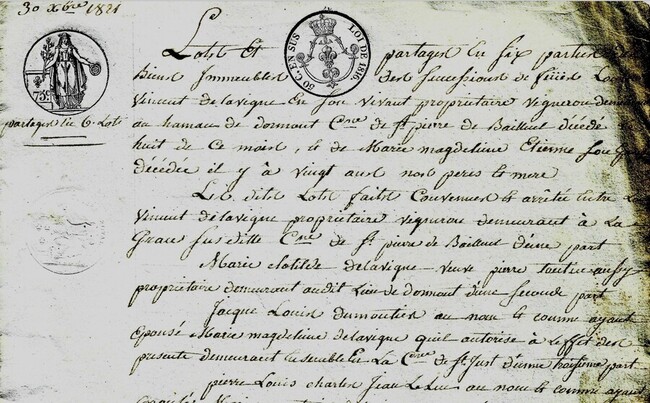 30 xbre 1821
50 C. EN SUS
LOI DE 1816.
75c.
partages en 6 Lots
Lots Et partages En Six parties
Biens Immeubles des successions de
Vincent delavigne En son vivant propriétaire vigneron
au hameau de dormont Cne de St pierre de Bailleul décédé
huit de Ce mois, & de Marie magdeleine Etienne son
décédée il y à vingt ans nos peres & mere
Les dits Lots faits Convenus & arrêtés Entre
Vincent delavigne propriétaire vigneron demeurant à La
Grace susditte Cne de St pierre de Bailleul d'une part
Marie Clotilde delavigne veuve pierre aussy
propriétaire demeurant audit Lieu de dormont d'une seconde part
Jacque Louis dumoutier au nom & comme ayant
épousé Marie magdeleine delavigne quil autorise à L'effet des
presente demeurant Ensemble En La Cne de St Just d'une troisieme part
pierre Louis charles Jean au nom & comme ayant